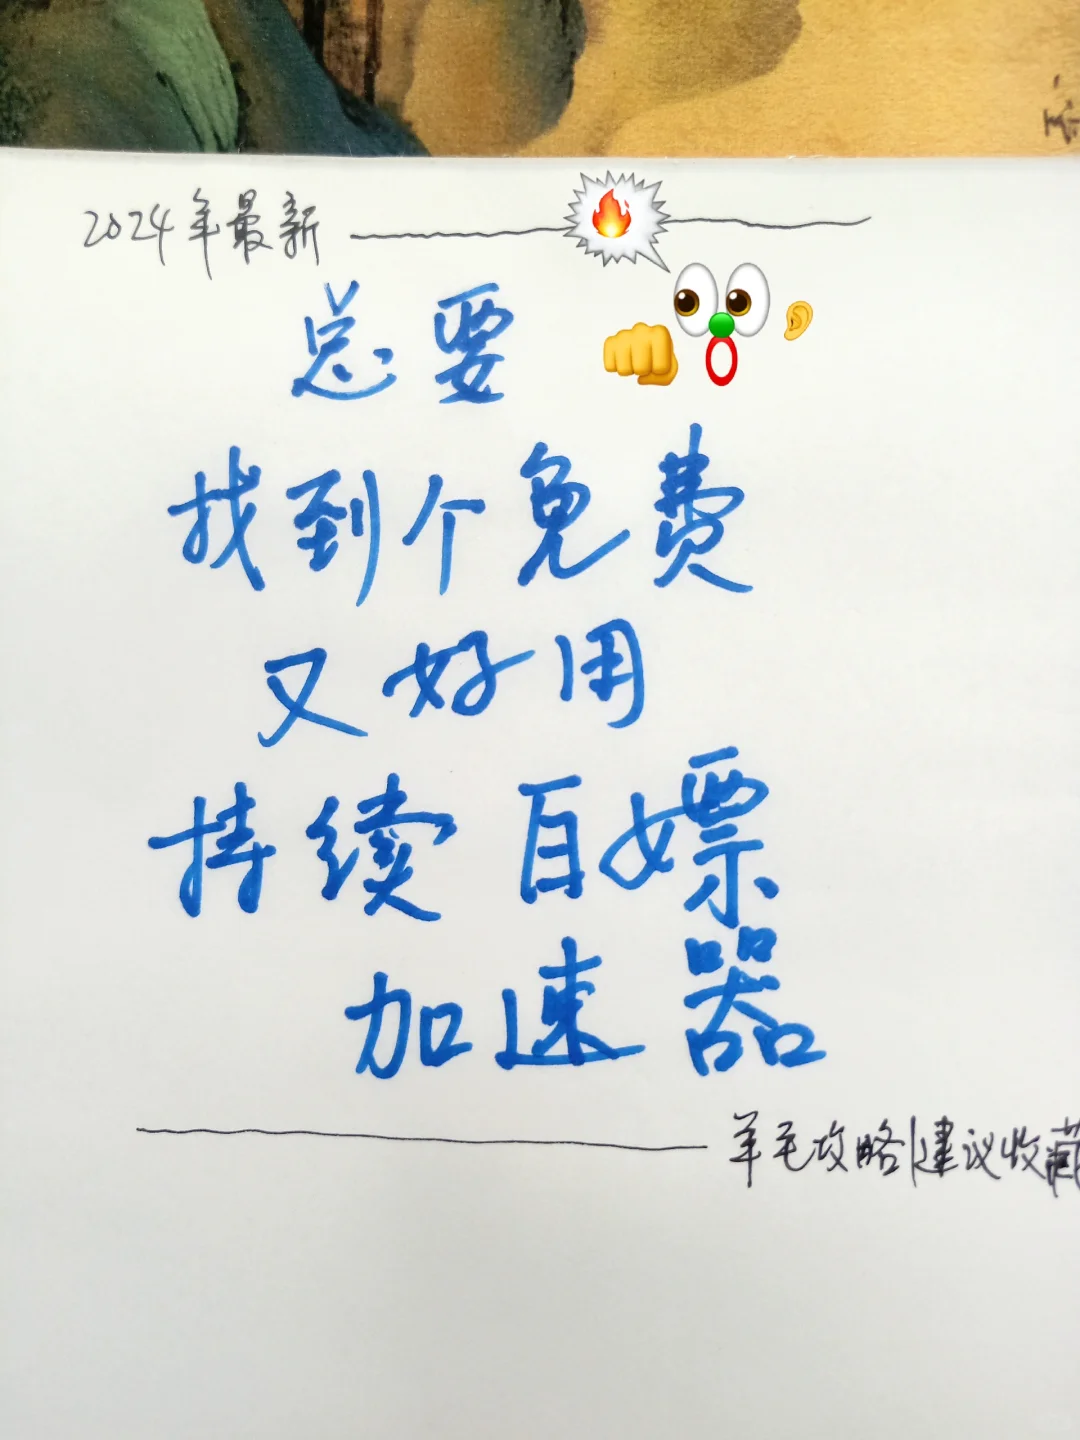 2024年最新
总要
找到个免费
又好用
持续白嫖
加速器
羊毛攻略|建议收藏